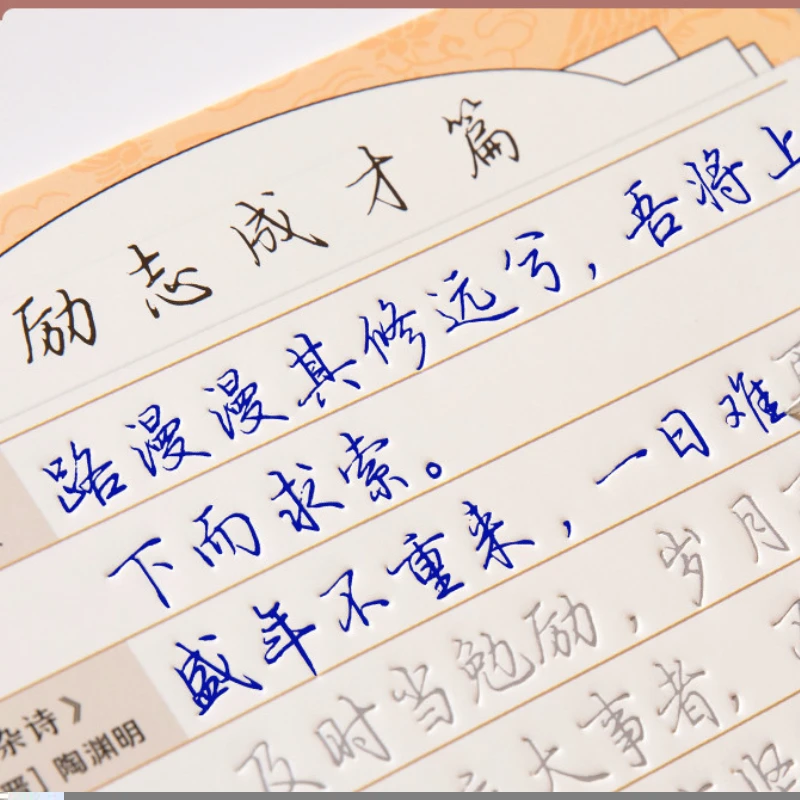 励志成才篇
路漫漫其修远兮，吾将上
下而求索。
盛年不重来，一日难
及时当勉励，岁月
杂诗》
晋］陶渊明
大事者，